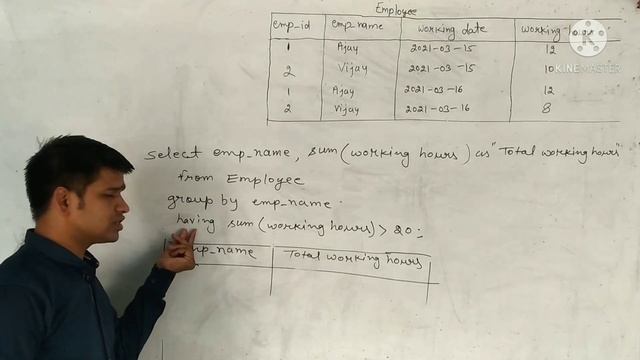 Employee
emp_id emp_name working date working hours
1 Ajay 2021-03-15 12
2 Vijay 2021-03-15 10
KINEMASTER
1 Ajay 2021-03-16 12
2 Vijay 2021-03-16 8
select emp_name, sum(working hours) as "Total working hours"
from Employee
group by emp_name.
having sum(working hours) > 20;
emp_name Total working hours